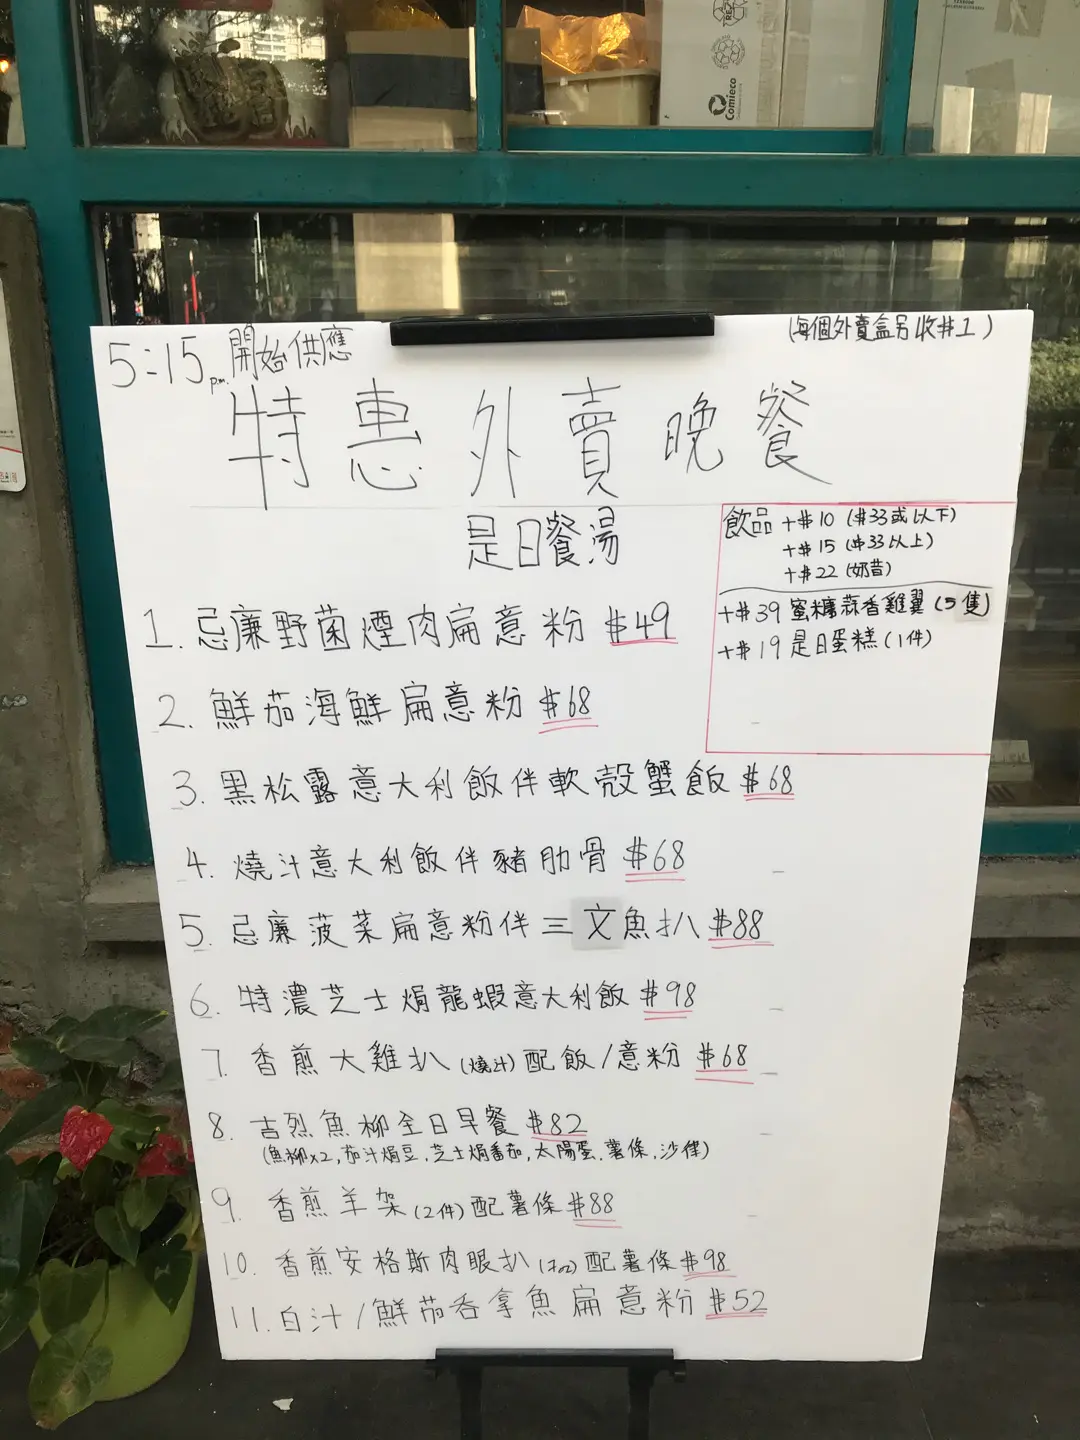 Comieco
5:15pm 開始供應
(每個外賣盒另收$1)
特惠外賣晚餐
是日餐湯
飲品 +$10 ($33或以下)
+$15 ($33以上)
+$22 (奶昔)
+$39 蜜糖蒜香雞翼 (5隻)
+$19 是日蛋糕 (1件)
1. 忌廉野菌煙肉扁意粉 $49
2. 鮮茄海鮮扁意粉 $68
3. 黑松露意大利飯伴軟殼蟹飯 $68
4. 燒汁意大利飯伴豬肋骨 $68
5. 忌廉菠菜扁意粉伴三文魚扒 $88
6. 特濃芝士焗龍蝦意大利飯 $98
7. 香煎大雞扒 (燒汁) 配飯/意粉 $68
8. 吉烈魚柳全日早餐 $82
(魚柳x2, 茄汁焗豆, 芝士焗番茄, 太陽蛋, 薯條, 沙律)
9. 香煎羊架 (2件) 配薯條 $88
10. 香煎安格斯肉眼扒 (7oz) 配薯條 $98
11. 白汁/鮮茄吞拿魚扁意粉 $52